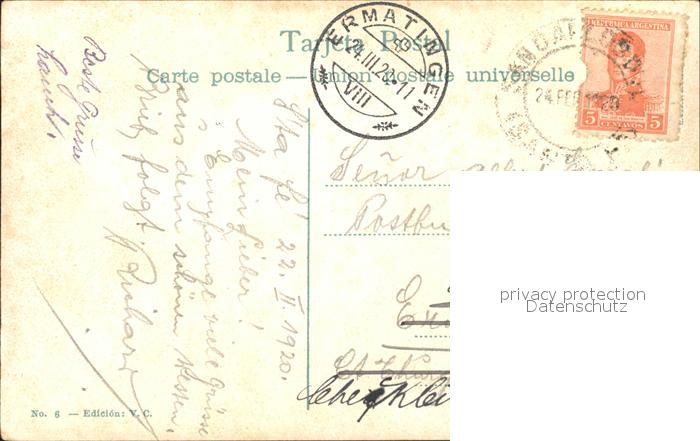 Tarjeta Postal
Carte postale — Union postale universelle
ERMATINGEN
VIII
REPUBLICA ARGENTINA
5 5
CENTAVOS
24 FEB 1920
Sta Fé 22. II. 1920.
Mein Lieber!
Empfange viele Grüsse
aus dem schönen Westen.
Brief folgt.
Richard
Best Grüsse
Señor
Postbu
Ct Thur
No. 6 — Edición: V. C.
privacy protection
Datenschutz